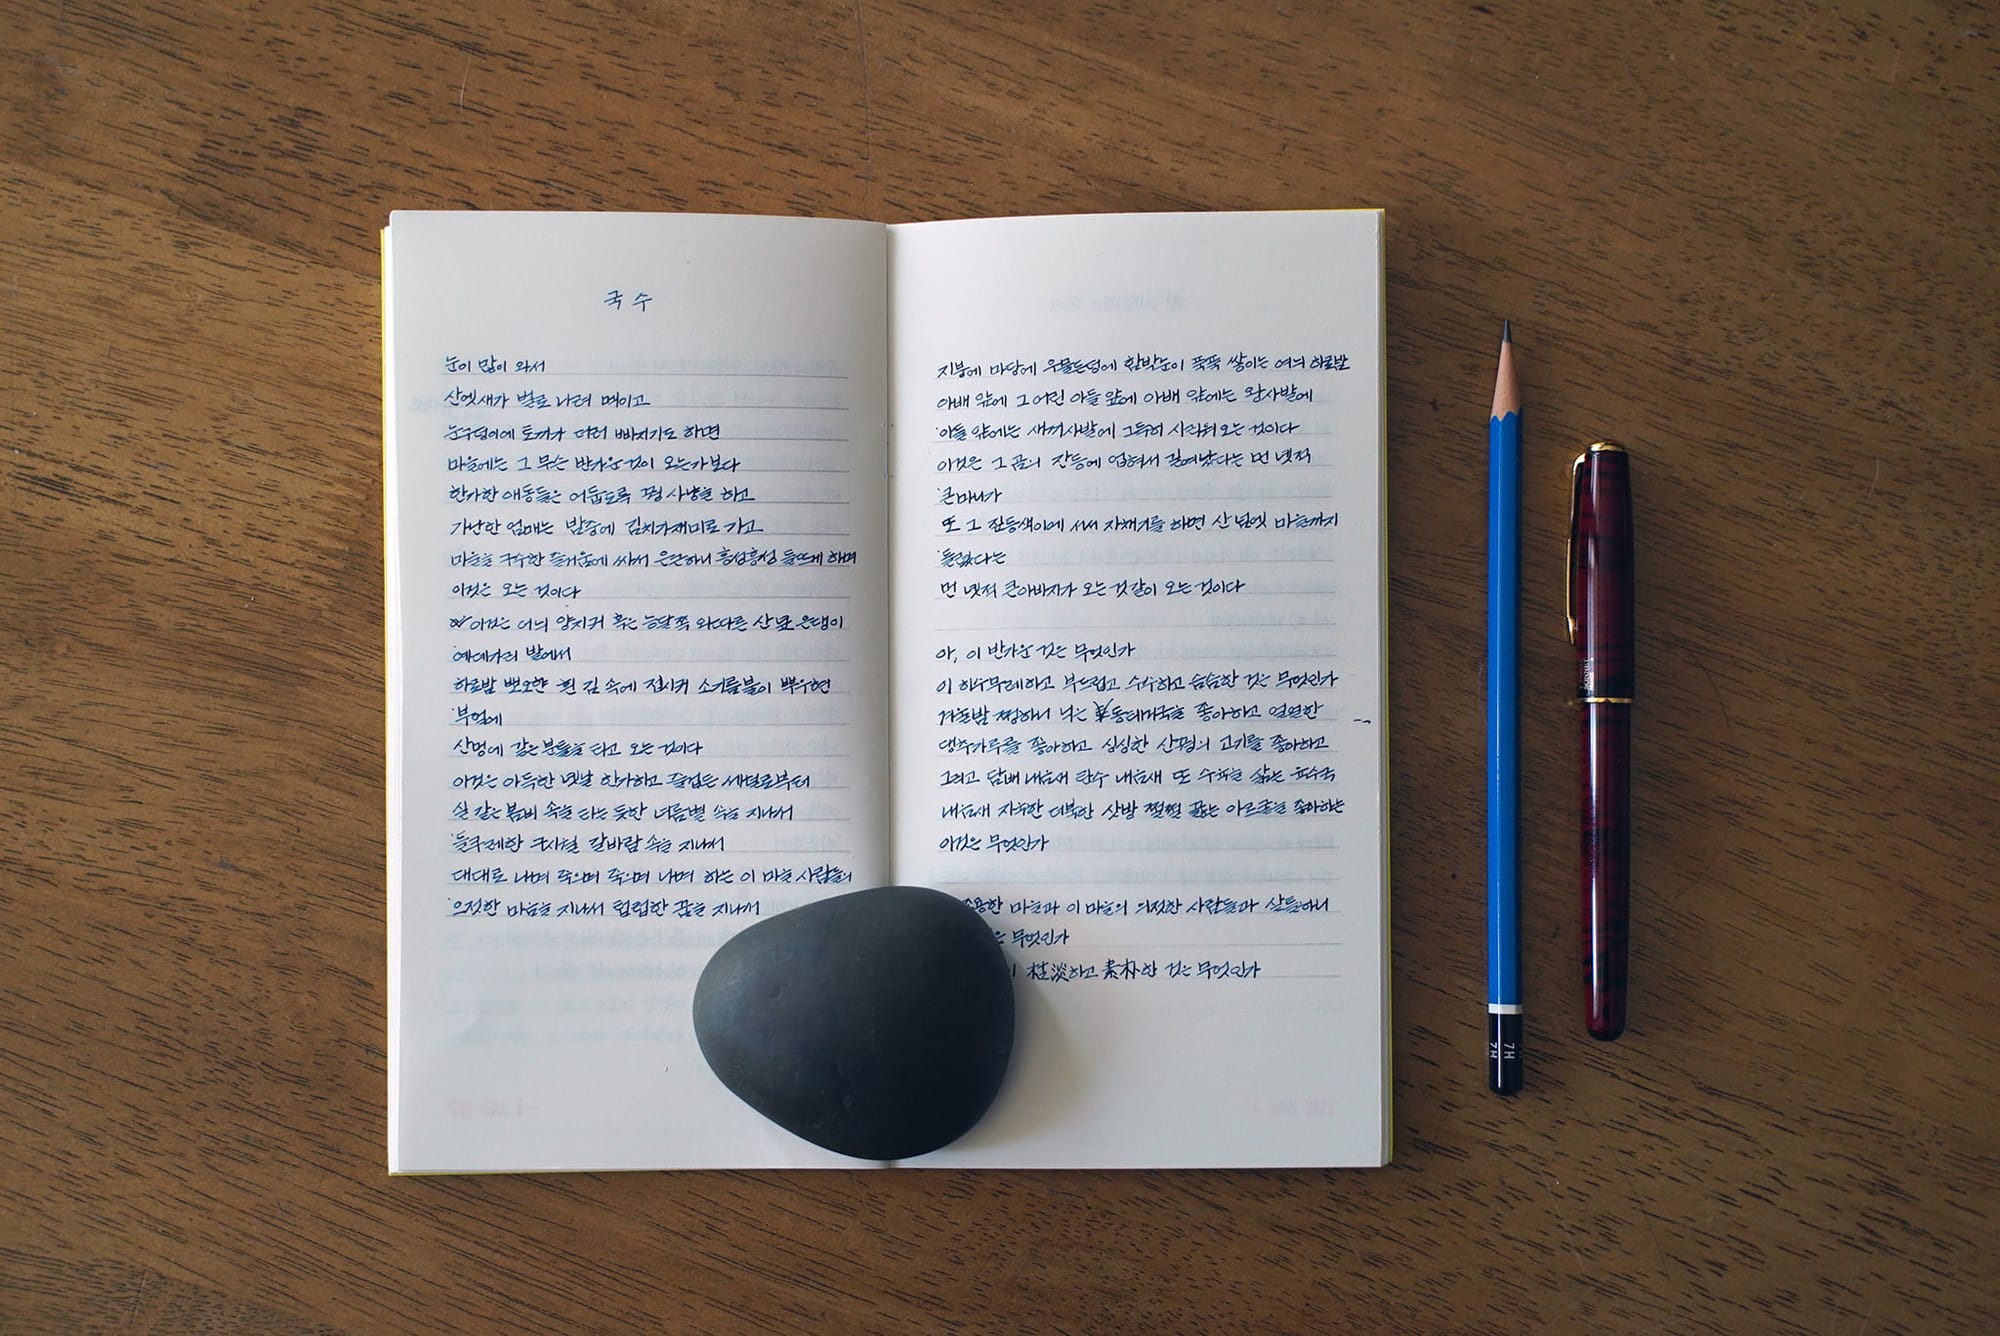 국수
눈이 많이 와서
산엣새가 벌로 나려 멕이고
눈구덩이에 토끼가 더러 빠지기도 하면
마을에는 그 무슨 반가운 것이 오는가보다
한가한 애동들은 어둡도록 꿩사냥을 하고
가난한 엄매는 밤중에 김치가재미로 가고
마을을 구수한 즐거움에 싸서 은근하니 흥성흥성 들뜨게 하며
이것은 오는 것이다
이것은 어늬 양지귀 혹은 능달쪽 외따른 산옆 은댕이
예데가리 밭에서
하로밤 뽀오햔 흰 김 속에 접시귀 소기름불이 뿌우현
부엌에
산멍에 같은 분틀을 타고 오는 것이다
이것은 아득한 녯날 한가하고 즐겁든 세월로부터
실 같은 봄비 속을 타는 듯한 녀름볕 속을 지나서
들쿠레한 구시월 갈바람 속을 지나서
대대로 나며 죽으며 죽으며 나며 하는 이 마을 사람들의
으젓한 마음을 지나서 텁텁한 꿈을 지나서
지붕에 마당에 우물든덩에 함박눈이 푹푹 쌓이는 여늬 하로밤
아배 앞에 그 어린 아들 앞에 아배 앞에는 왕사발에
아들 앞에는 새끼사발에 그득히 사리워 오는 것이다
이것은 그 곰의 잔등에 업혀서 길여났다는 먼 녯적
큰마니가
또 그 집등색이에 서서 자채기를 하면 산넘엣 마을까지
들렸다는
먼 녯적 큰아바지가 오는 것같이 오는 것이다
아, 이 반가운 것은 무엇인가
이 히수무레하고 부드럽고 수수하고 슴슴한 것은 무엇인가
겨울밤 쩡하니 닉은 동티미국을 좋아하고 얼얼한
댕추가루를 좋아하고 싱싱한 산꿩의 고기를 좋아하고
그리고 담배 내음새 탄수 내음새 또 수육을 삶는 육수국
내음새 자욱한 더북한 삿방 쩔쩔 끓는 아르굴을 좋아하는
이것은 무엇인가
용한 마을과 이 마을의 으젓한 사람들과 살틀하니
은 무엇인가
이 枯淡하고 素朴한 것은 무엇인가
7H
7H